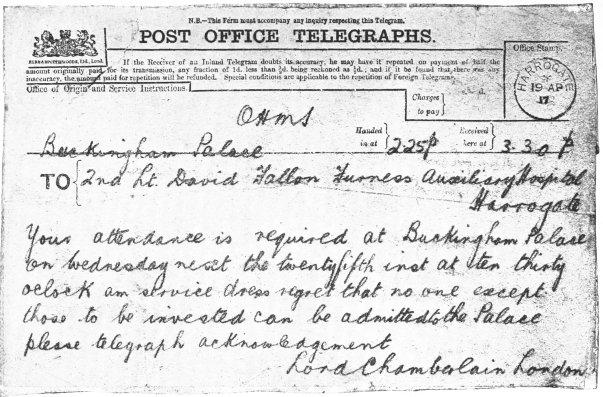 N.B.—This Form must accompany any inquiry respecting this Telegram.
POST OFFICE TELEGRAPHS.
If the Receiver of an Inland Telegram doubts its accuracy, he may have it repeated on payment of half the
amount originally paid for its transmission, any fraction of 1d. less than ½d. being reckoned as ½d.; and if it be found that there was any
inaccuracy, the amount paid for repetition will be refunded. Special conditions are applicable to the repetition of Foreign Telegrams.
Office Stamp.
HARROGATE
19 AP
17
Office of Origin and Service Instructions.
Charges
to pay
OHMS
Buckingham Palace
Handed in at 2.25p
Received here at 3.30p
TO 2nd Lt. David Fallon Furness Auxiliary Hospital
Harrogate
Your attendance is required at Buckingham Palace
on Wednesday next the twentyfifth inst at ten thirty
oclock am service dress regret that no one except
those to be invested can be admitted to the Palace
please telegraph acknowledgement
Lord Chamberlain London